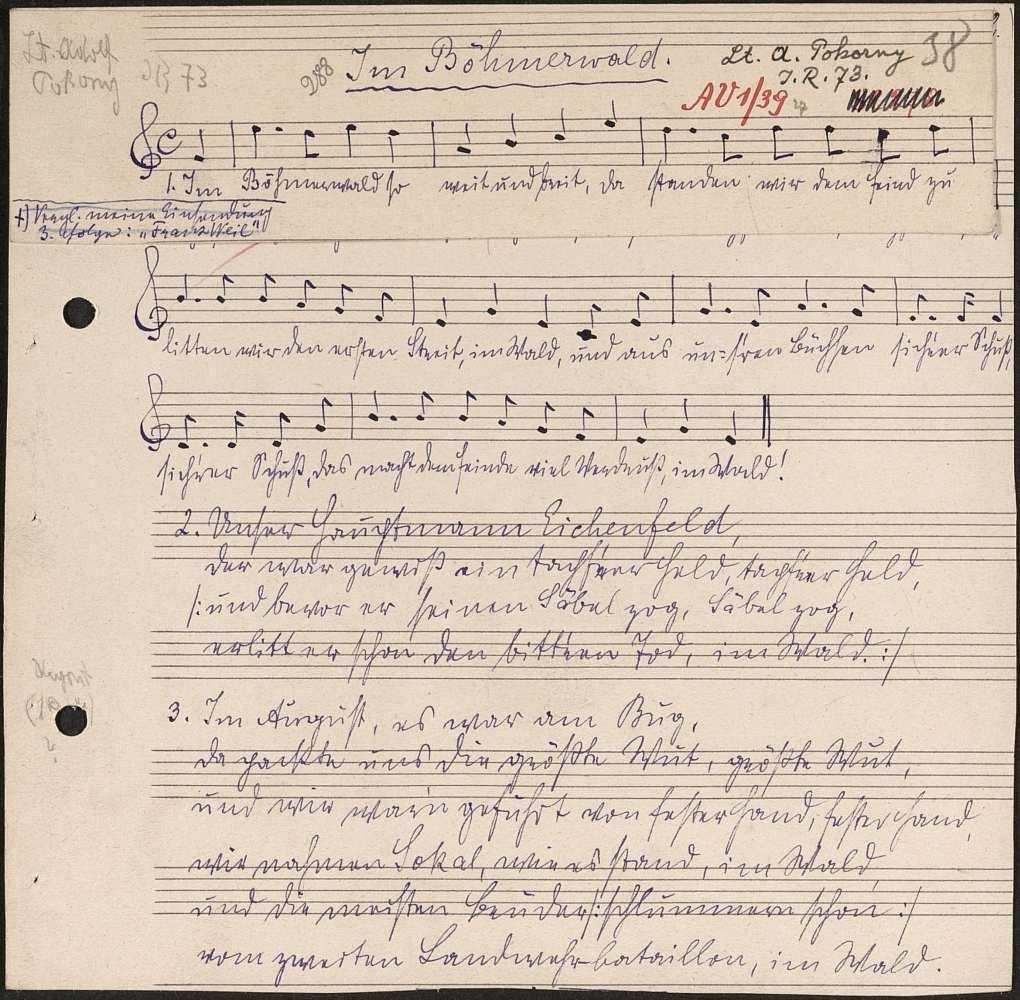 Lt. Adolf
Pokorny JR 73.
988
Im Böhmerwald.
Lt. A. Pokorny
J. R. 73.
38
AV 1/39
1. Im Böhmerwald so weit und breit, da standen wir dem Feind zu
+) Vergl. meine Einsendung
3. Folge: "Franz Weil"
litten wir den ersten Streit, im Wald, und aus un=sren Büchsen sich'rer Schuß,
sich'rer Schuß, das macht dem Feinde viel Verdruß, im Wald!
2. Unser Hauptmann Eichenfeld,
der war gewiß ein tapf'rer Held, tapf'rer Held,
/: und bevor er seinen Säbel zog, Säbel zog,
erlitt er schon den bittern Tod, im Wald. :/
3. Im August, es war am Bug,
da packte uns die größte Wut, größte Wut,
und wir war'n geführt von fester Hand, fester Hand,
wir nahmen Sokal, wie es stand, im Wald
und die meisten Brüder /: schlummern schon :/
vom zweiten Landwehrbataillon, im Wald.
August